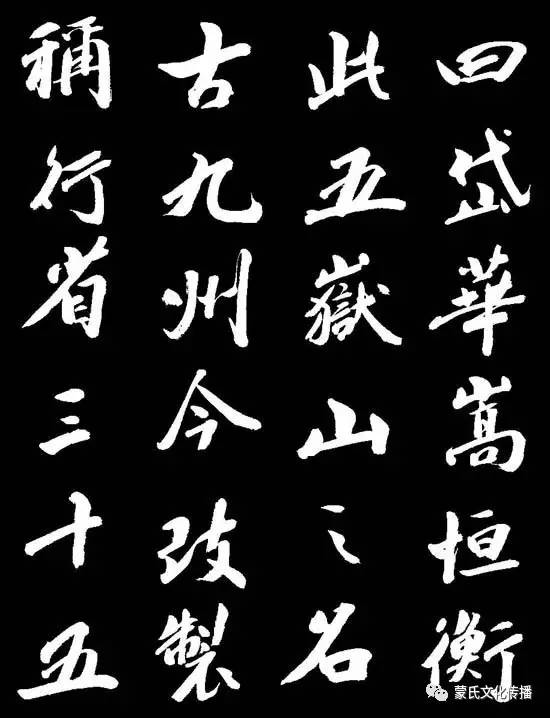 曰岱華嵩恒衡
此五嶽山之名
古九州今改製
稱行省三十五
蒙氏文化传播